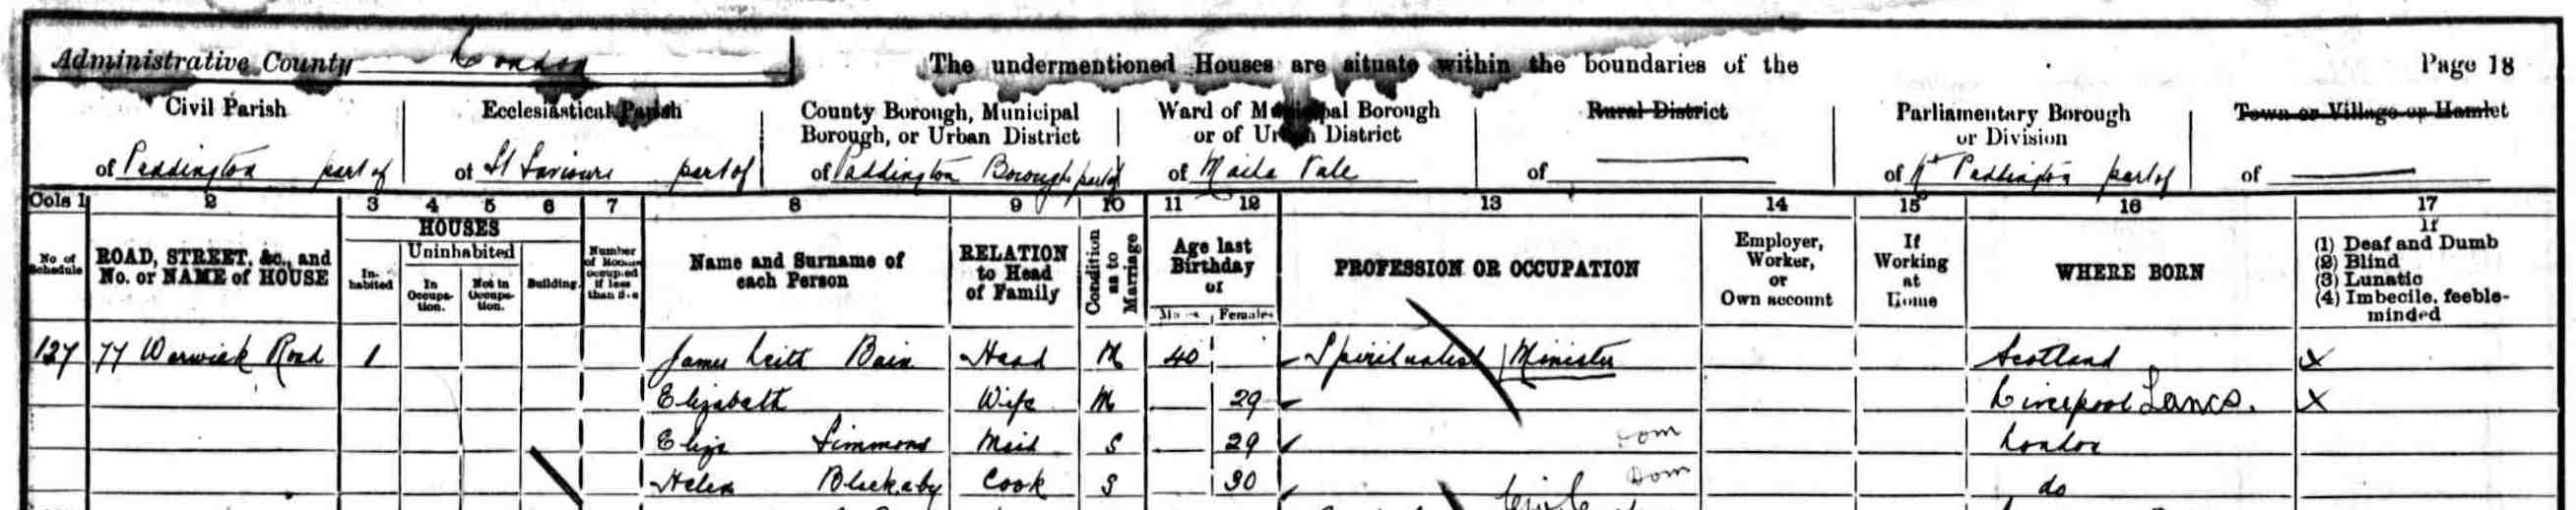 Administrative County London
The undermentioned Houses are situate within the boundaries of the
Page 18
Civil Parish
of Paddington part of
Ecclesiastical Parish
of St Saviours part of
County Borough, Municipal
Borough, or Urban District
of Paddington Borough part of
Ward of Municipal Borough
or of Urban District
of Maida Vale
Rural District
of
Parliamentary Borough
or Division
of Nth Paddington part of
Town or Village or Hamlet
of
Cols 1 2 3 4 5 6 7 8 9 10 11 12 13 14 15 16 17
No of
Schedule
ROAD, STREET, &c., and
No. or NAME of HOUSE
HOUSES
In-
habited
Uninhabited
In
Occupa-
tion.
Not in
Occupa-
tion.
Building.
Number
of Rooms
occupied
if less
than five
Name and Surname of
each Person
RELATION
to Head
of Family
Condition
as to
Marriage
Age last
Birthday
of
Males Females
PROFESSION OR OCCUPATION
Employer,
Worker,
or
Own account
If
Working
at
Home
WHERE BORN
If
(1) Deaf and Dumb
(2) Blind
(3) Lunatic
(4) Imbecile, feeble-
minded
127 77 Warwick Road 1 James Leith Bain Head M 40 Spiritualist Minister Scotland X
Elizabeth Wife M 29 Liverpool Lancs. X
Eliza Simmons Maid S 29 Dom London
Helen Blackaby Cook S 30 Dom do
Civil